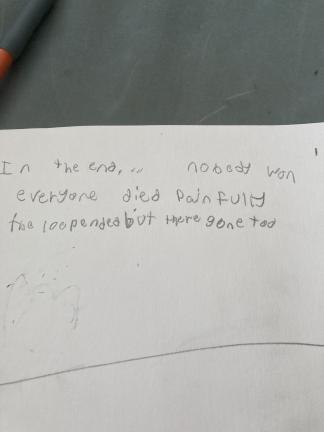 In the end, ... nobody won
everyone died Painfully
the loopended but there gone too